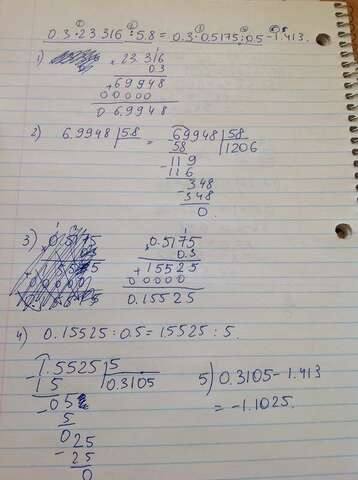 0.3·23.316:5.8 = 0.3·0.5175:0.5-1.413.
1) 23.316
× 0.3
+69948
00000
0 6.9948
2) 6.9948 |58 = 69948 |58
58 |1206
-119
116
-348
-348
0.
3) 0.5175 0.5175
0.3
+15525
00000
0.15525
4) 0.15525:0.5=1.5525:5.
1.5525 |5
-15 |0.3105
-05
5
025
-25
0
5) 0.3105-1.413
=-1.1025.